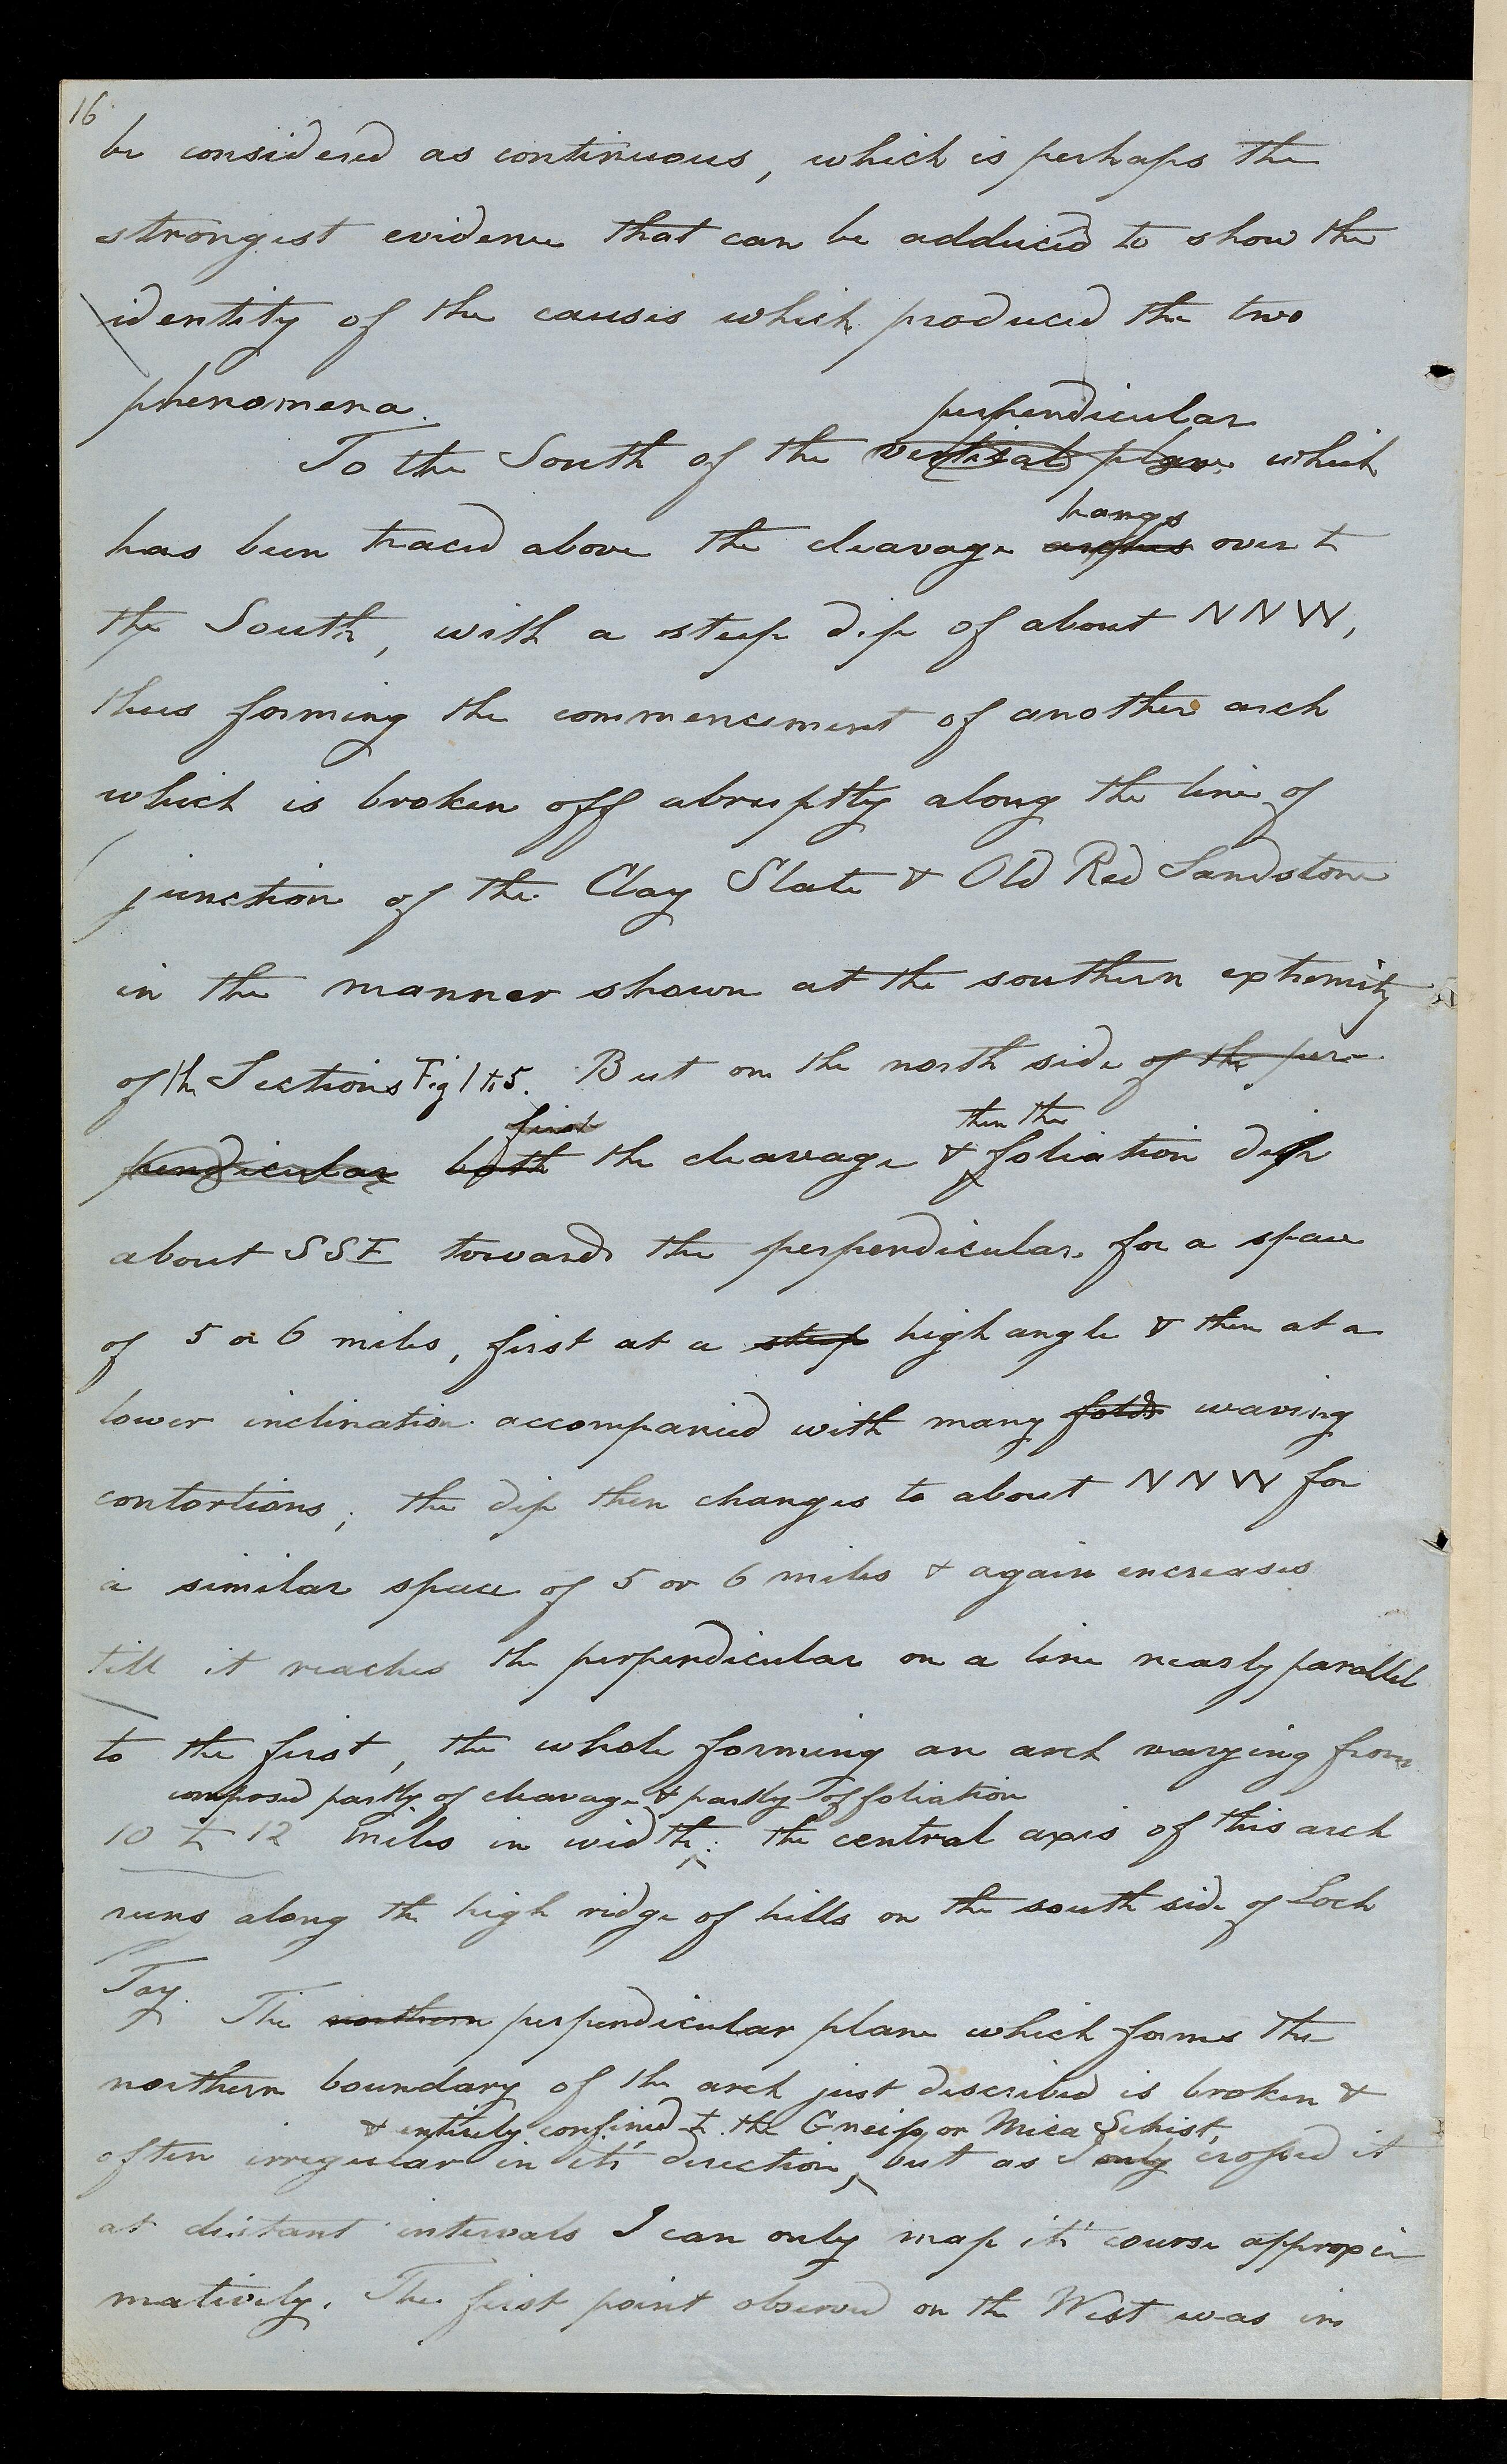 16
be considered as continuous, which is perhaps the
strongest evidence that can be adduced to show the
identity of the causes which produced the two
phenomena.
perpendicular
To the South of the vertical plane which
hangs
has been traced above the cleavage arches over to
the South, with a steep dip of about NNW,
thus forming the commencement of another arch
which is broken off abruptly along the line of
junction of the Clay Slate & Old Red Sandstone
in the manner shown at the southern extremity
of the Sections Fig 1 to 5. But on the north side of the per-
first then the
pendicular both the cleavage & foliation dip
about SSE towards the perpendicular for a space
of 5 or 6 miles, first at a steep high angle & then at a
lower inclination accompanied with many folds waving
contortions; the dip then changes to about NNW for
a similar space of 5 or 6 miles & again increases
till it reaches the perpendicular on a line nearly parallel
to the first, the whole forming an arch varying from
composed partly of cleavage & partly of foliation
10 to 12 miles in width: the central axis of this arch
runs along the high ridge of hills on the south side of Loch
Tay. The northern perpendicular plane which forms the
northern boundary of the arch just described is broken &
& entirely confined to the Gneiss or Mica Schist,
often irregular in it's direction, but as I only crossed it
at distant intervals I can only map it's course approxi-
matively. The first point observed on the West was in